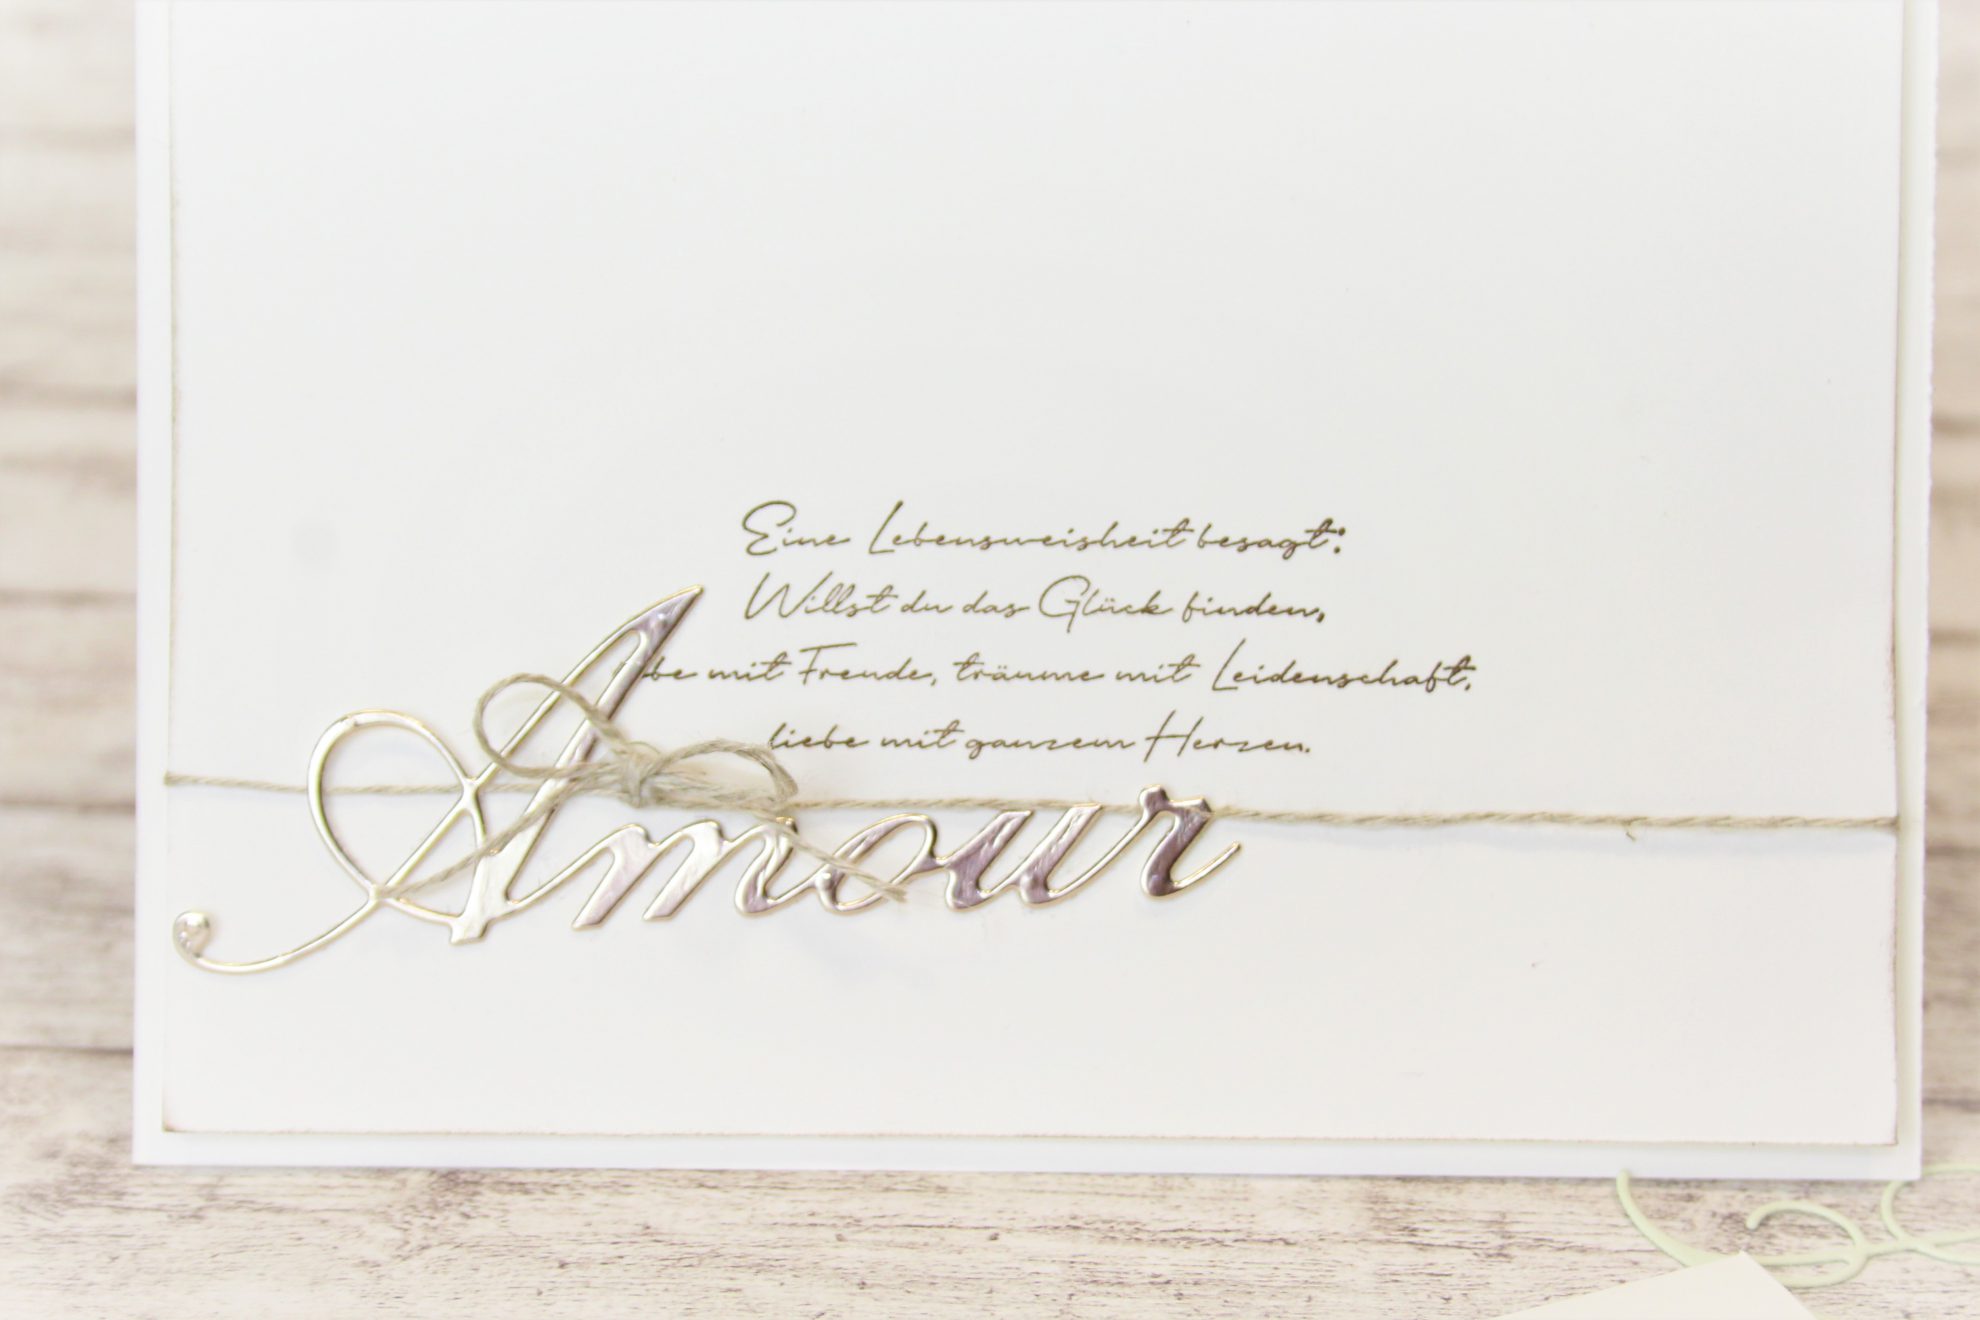 Eine Lebensweisheit besagt:
Willst du das Glück finden,
be mit Freude, träume mit Leidenschaft,
liebe mit ganzem Herzen.
Amour